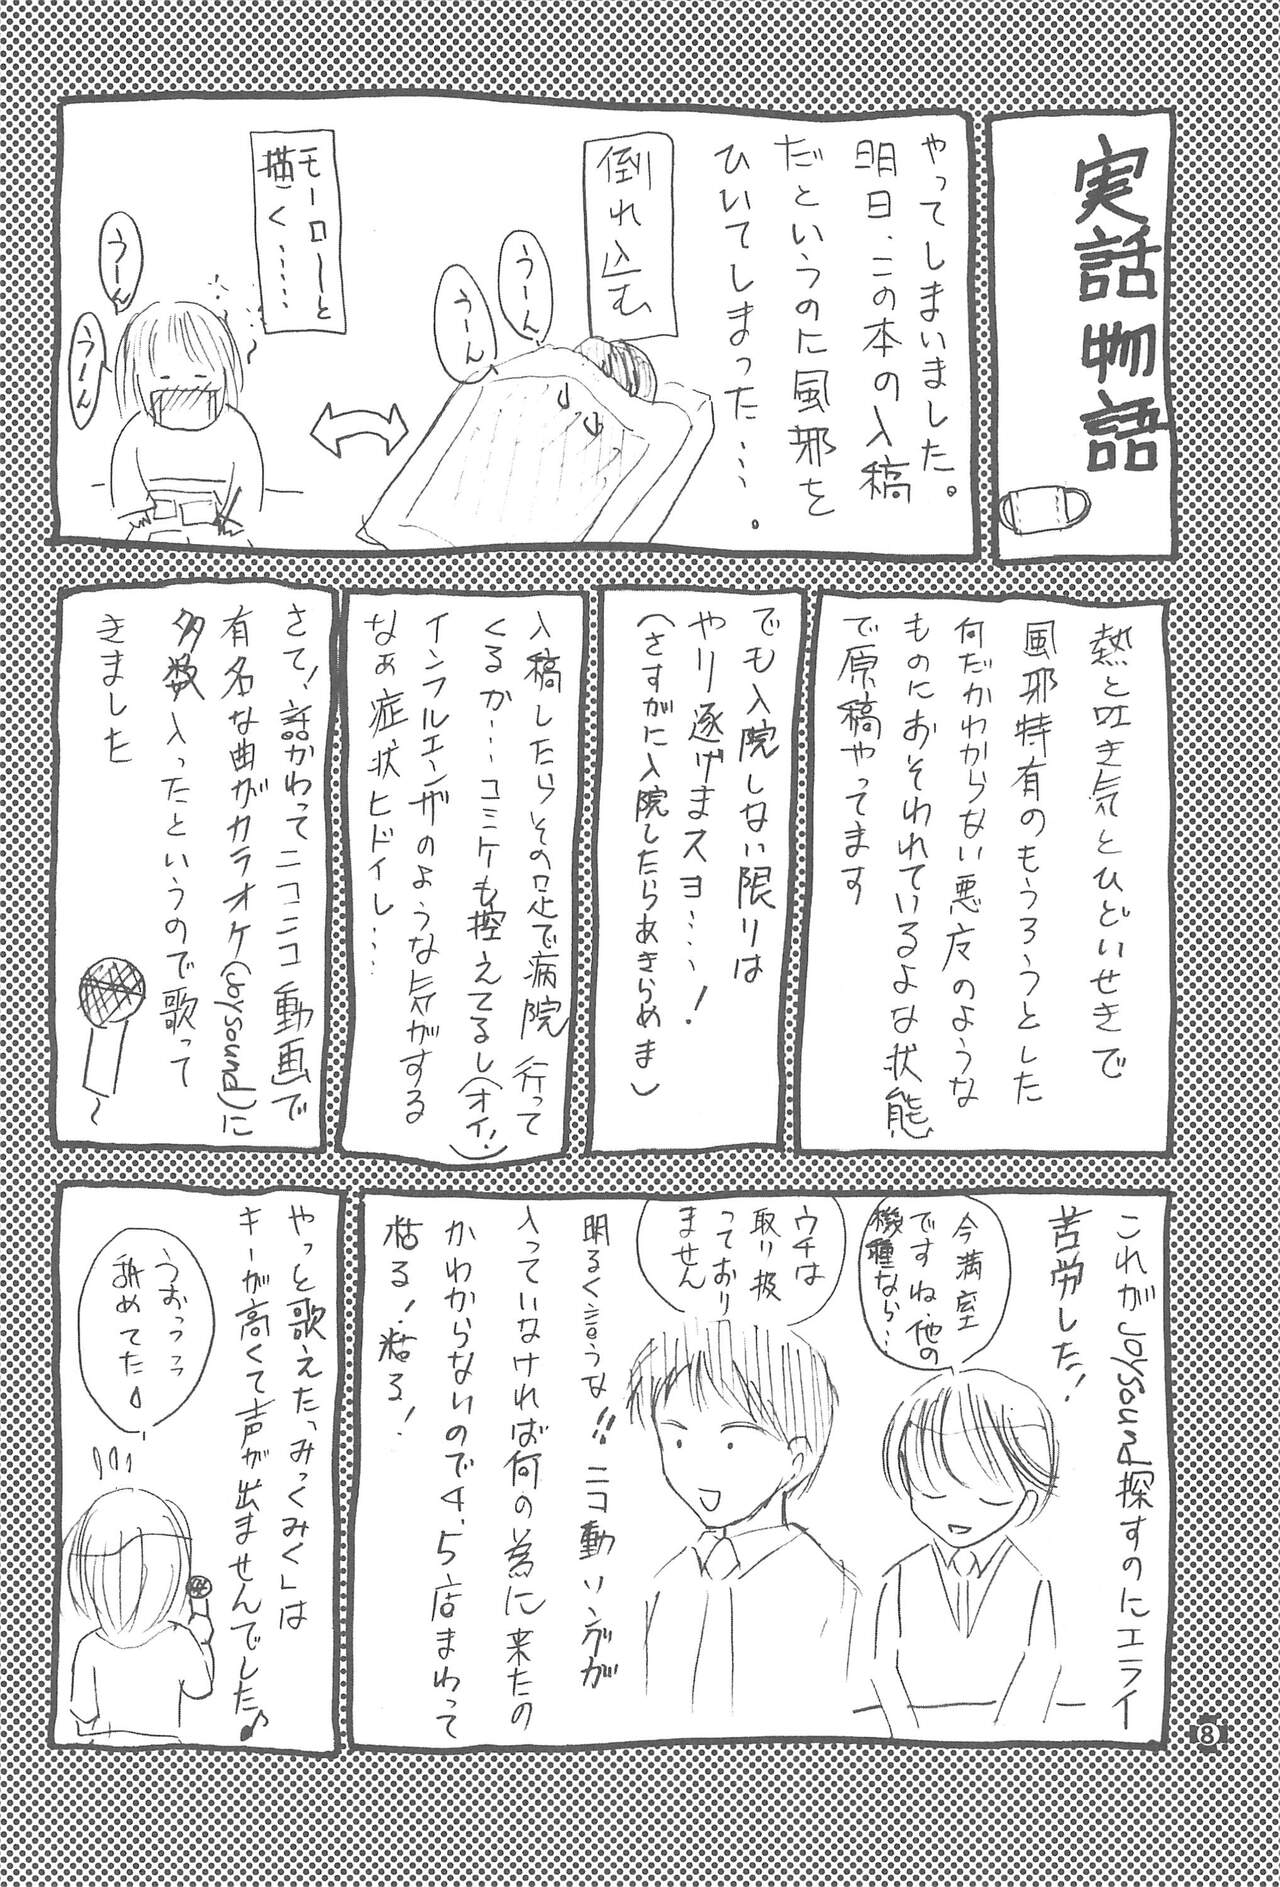 実話物語
やってしまいました。
明日、この本の入稿
だというのに風邪を
ひいてしまった……。
倒れ込む
うーん
うーん
モーローと
描く……
うーん
うーん
熱と吐き気とひどいせきで
風邪特有のもうろうとした
何だかわからない悪夜のような
ものにおそわれているよな状態
で原稿やってます
でも入院しない限りは
やり遂げまスヨ……!
(さすがに入院したらあきらめま)
入稿したらその足で病院行って
くるか…コミケも控えてるし(オイ)
インフルエンザのような気がする
なぁ症状ヒドイし……
さて!話かわってニコニコ動画で
有名な曲がカラオケ(joysound)に
多数入ったというので歌って
きました
これがjoysound探すのにエライ
苦労した!
今満室
ですね、他の
機種なら…
ウチは
取り扱
っており
ません
明るく言うな!!ニコ動ソングが
入っていなければ何の為に来たの
かわからないので4、5店まわって
粘る!粘る!
やっと歌えたっみっくみく」は
キーが高くて声が出ませんでした♪
うおっっっ
舐めてた
8